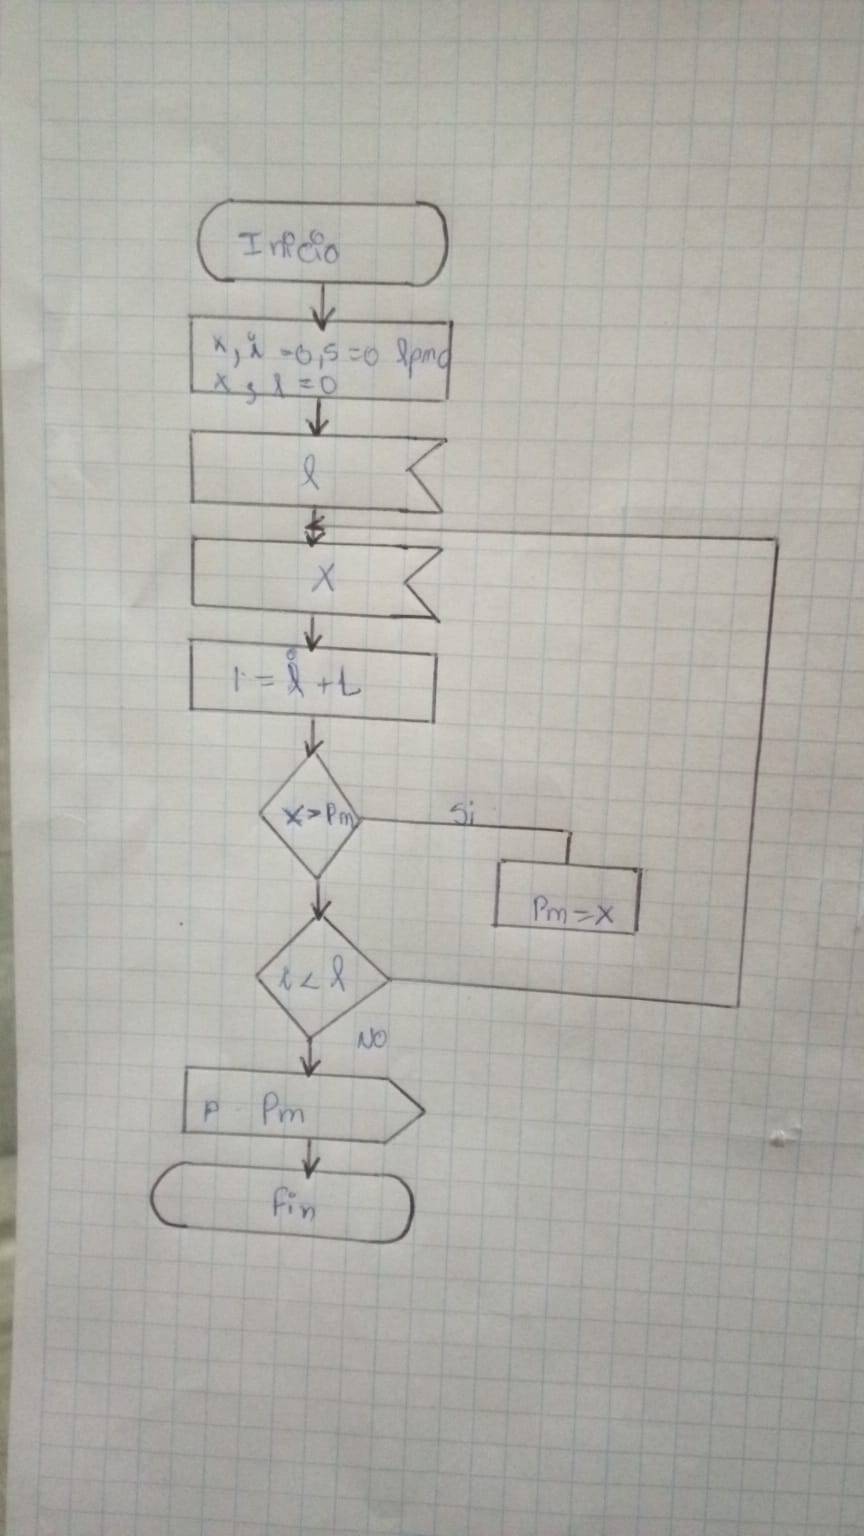 Inicio
x, i =0, s=0 lpmd
x, l =0
l
X
i = i +1
x > Pm
Si
Pm = x
i < l
NO
P Pm
Fin